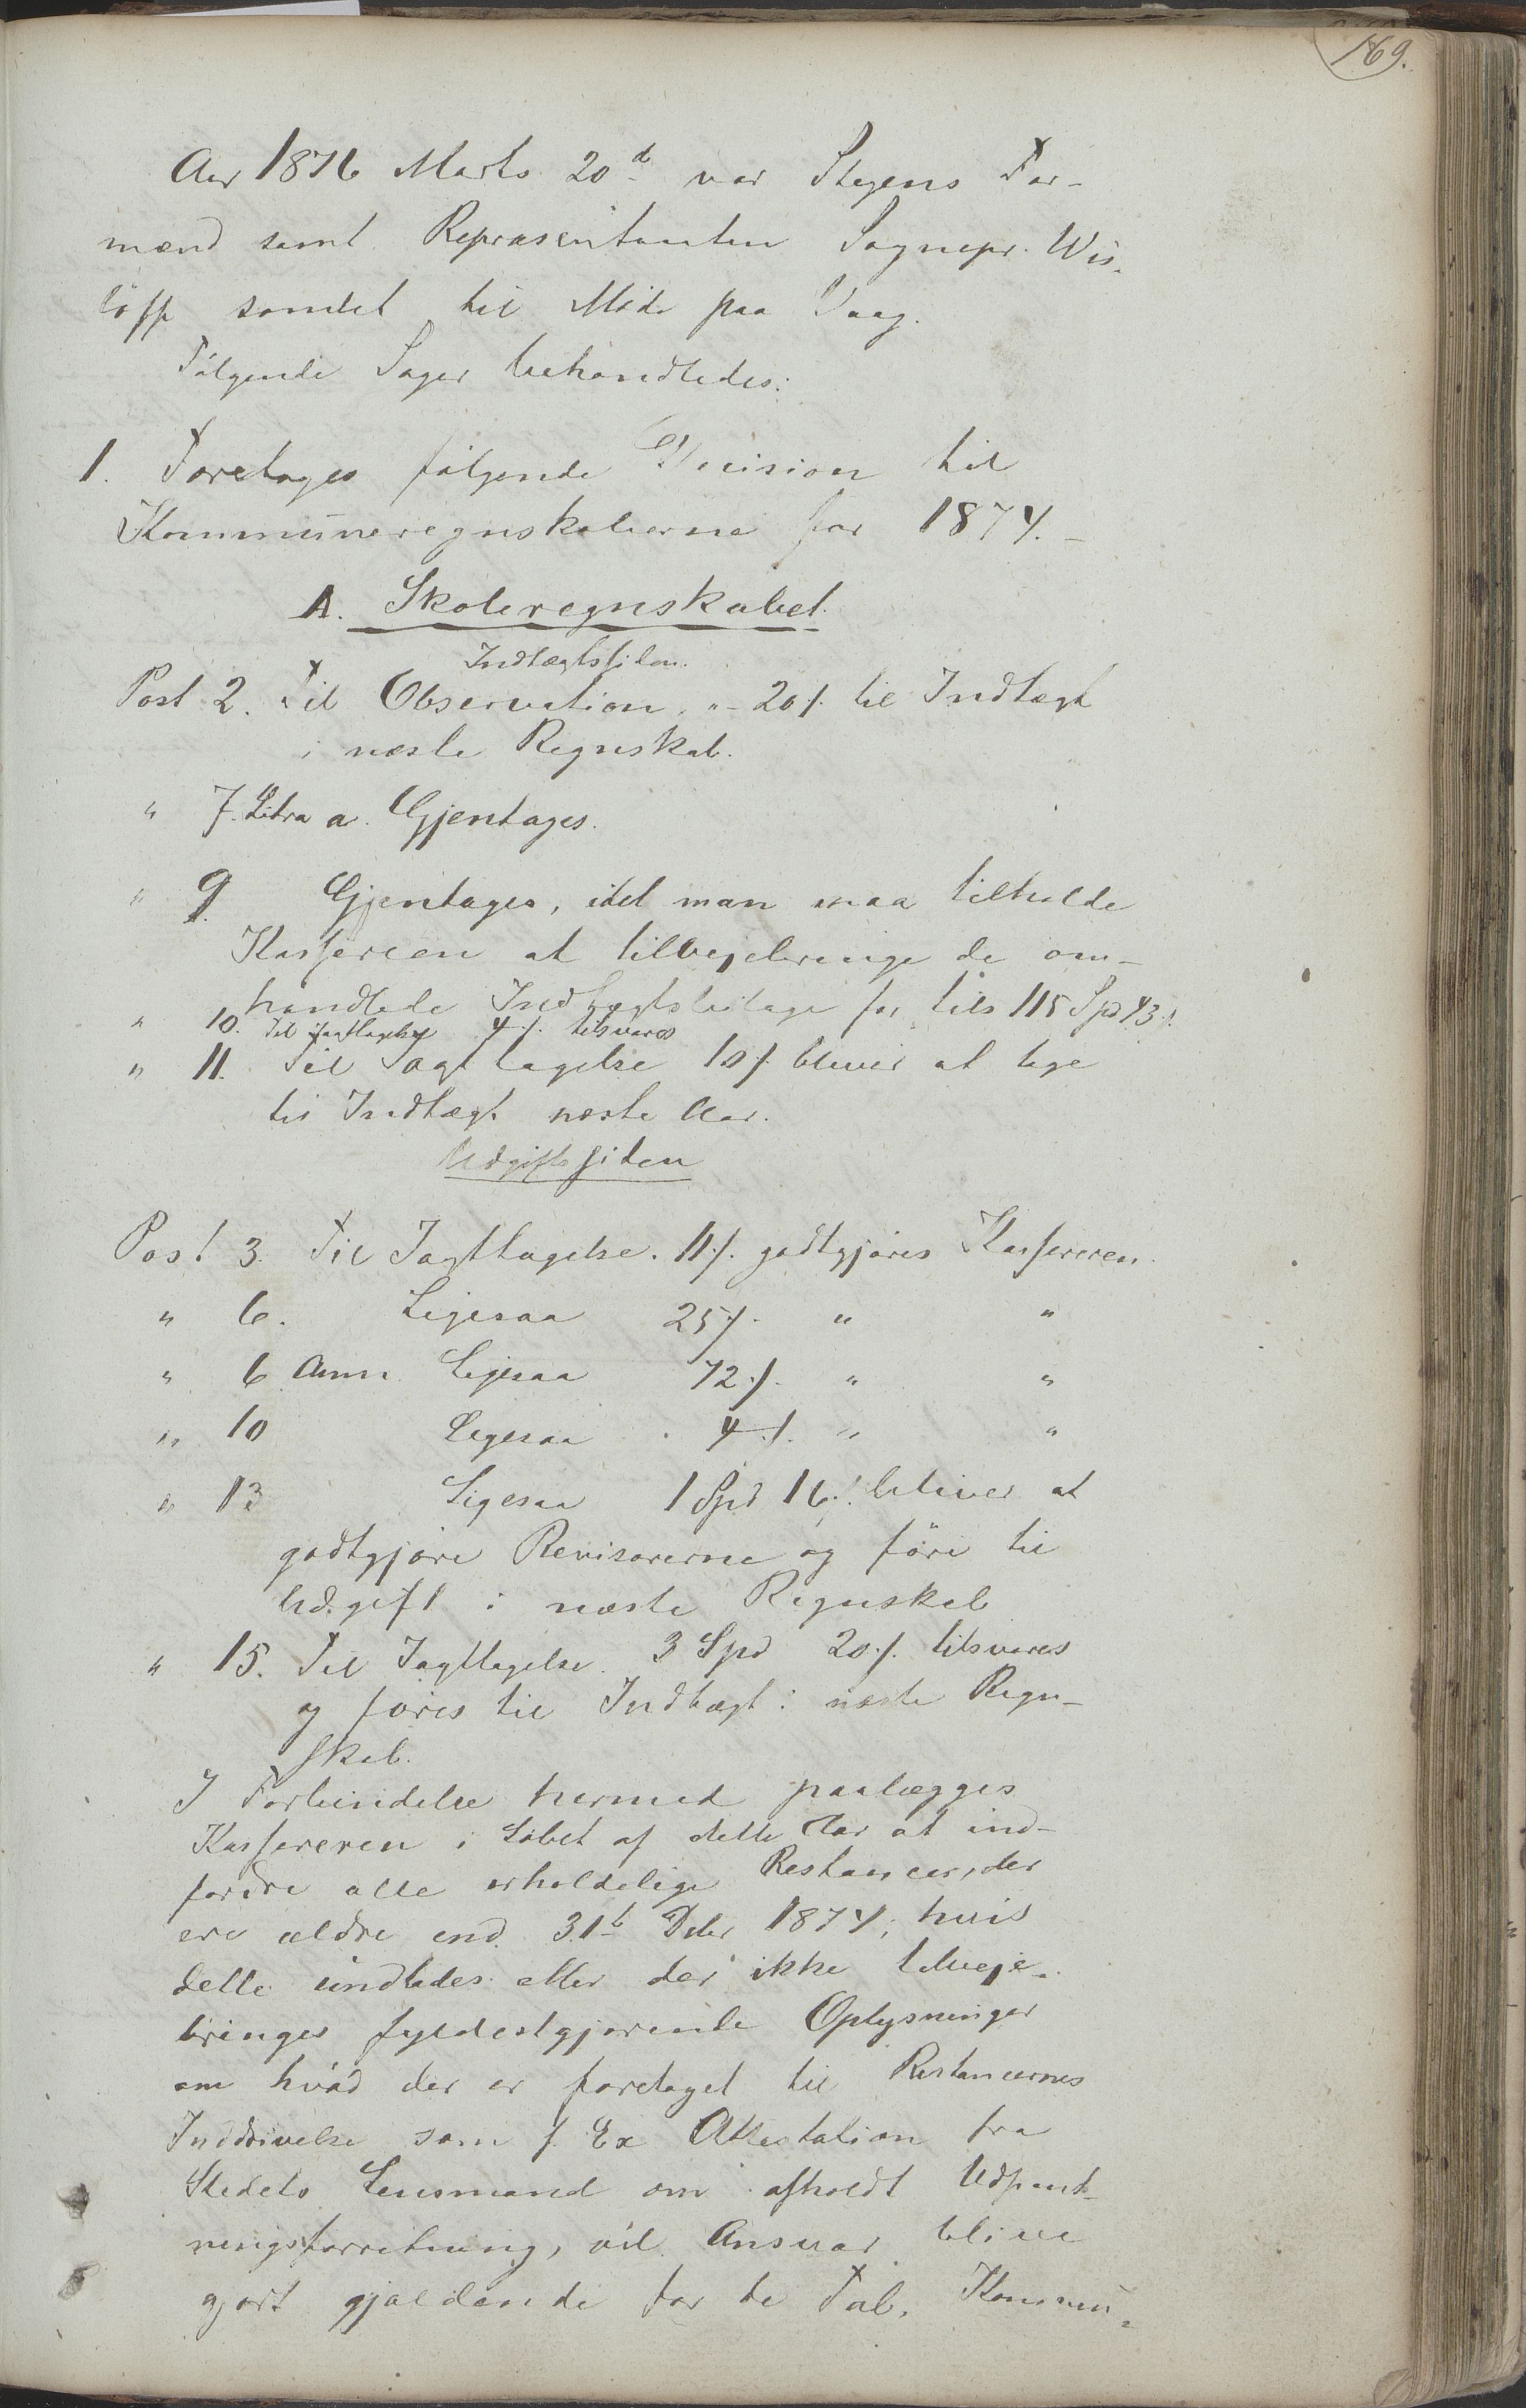 169.
Aar 1876 Marts 20d. var Stegens For-
mænd samt Repræsentanten Sognepr. Wis-
löff samlet til Möde paa Vaag.
Fölgende Sager behandledes:
1. Foretages fölgende Decision til
Kommuneregnskaberne for 1874.-
A. Skoleregnskabet.
Indtægtssiden.
Post 2. Til Observation. "- 20 ß. til Indtægt
i næste Regnskab.
" 7. Litra a. Gjentages.
" 9. Gjentages, idet man maa tilholde
Kassereren at tilvejebringe de om-
handlede Indtægtsbilage for tils 115 Spd 43 ß.
" 10. Til Iagttagelse 4 ß. tilsvares
" 11. Til Iagttagelse 10 ß. bliver at tage
til Indtægt næste Aar.
Udgiftssiden
Post 3. Til Iagttagelse. 11 ß. godtgjöres Kassereren.
" 6. Ligesaa 25 ß. " "
" 6 Anm. Ligesaa 72 ß. " "
" 10 Ligesaa 4 ß. " "
" 13 Ligesaa 1 Spd 16 ß. bliver at
godtgjöre Revisorerne og före til
Udgift i næste Regnskab
" 15. Til Iagttagelse. 3 Spd 20 ß. tilsvares
og föres til Indtægt i næste Regn-
skab.
I Forbindelse hermed paalægges
Kassereren i Löbet af dette Aar at ind-
fordre alle erholdelige Restancer, der
ere ældre end 31te Dcbr 1874; hvis
dette undlades eller der ikke tilveje-
bringes fyldestgjörende Oplysninger
om hvad der er foretaget til Restancernes
Inddrivelse som f. Ex Attestation fra
Stedets Lensmand om afholdt Udpant-
ningsforretning, vil Ansvar blive
gjort gjældende for de Tab, Kommu-